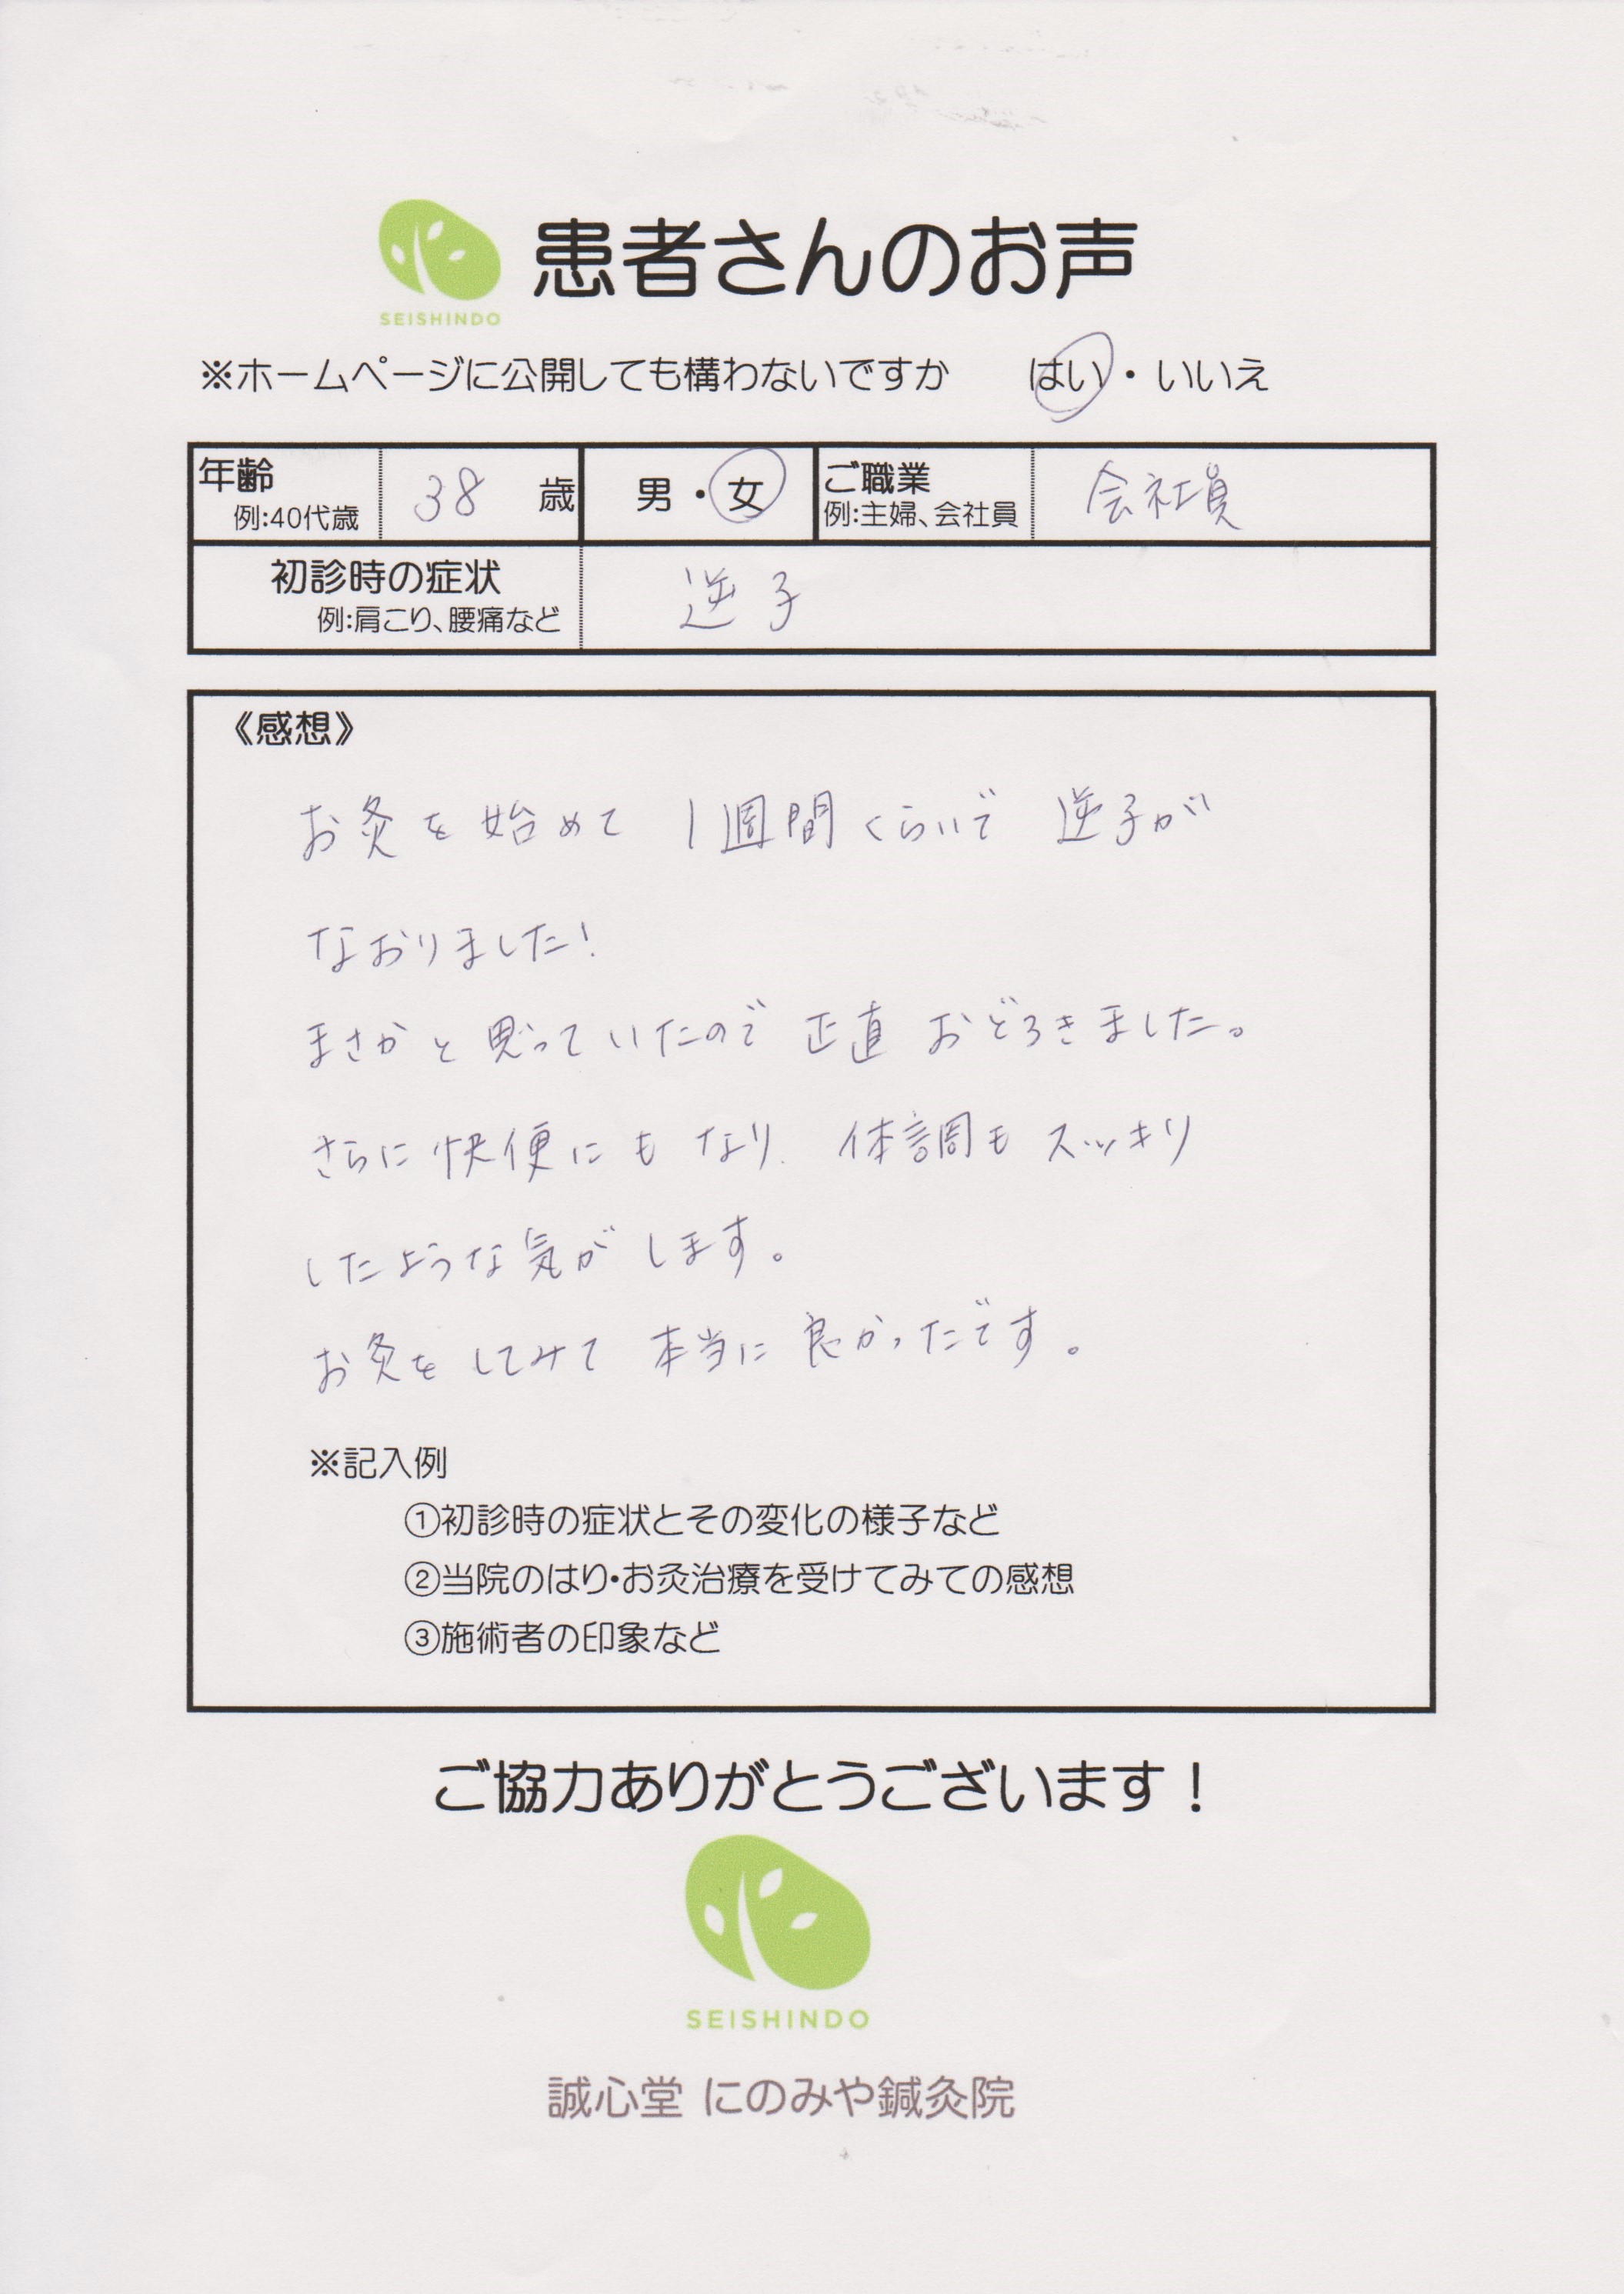 SEISHINDO
患者さんのお声
※ホームページに公開しても構わないですか はい・いいえ
年齢 38 歳 男・女 ご職業 会社員
例:40代歳 例:主婦、会社員
初診時の症状 逆子
例:肩こり、腰痛など
《感想》
お灸を始めて 1週間くらいで 逆子が
なおりました!
まさかと思っていたので 正直 おどろきました。
さらに快便にもなり、体調もスッキリ
したような気がします。
お灸をしてみて 本当に良かったです。
※記入例
①初診時の症状とその変化の様子など
②当院のはり・お灸治療を受けてみての感想
③施術者の印象など
ご協力ありがとうございます!
SEISHINDO
誠心堂 にのみや鍼灸院